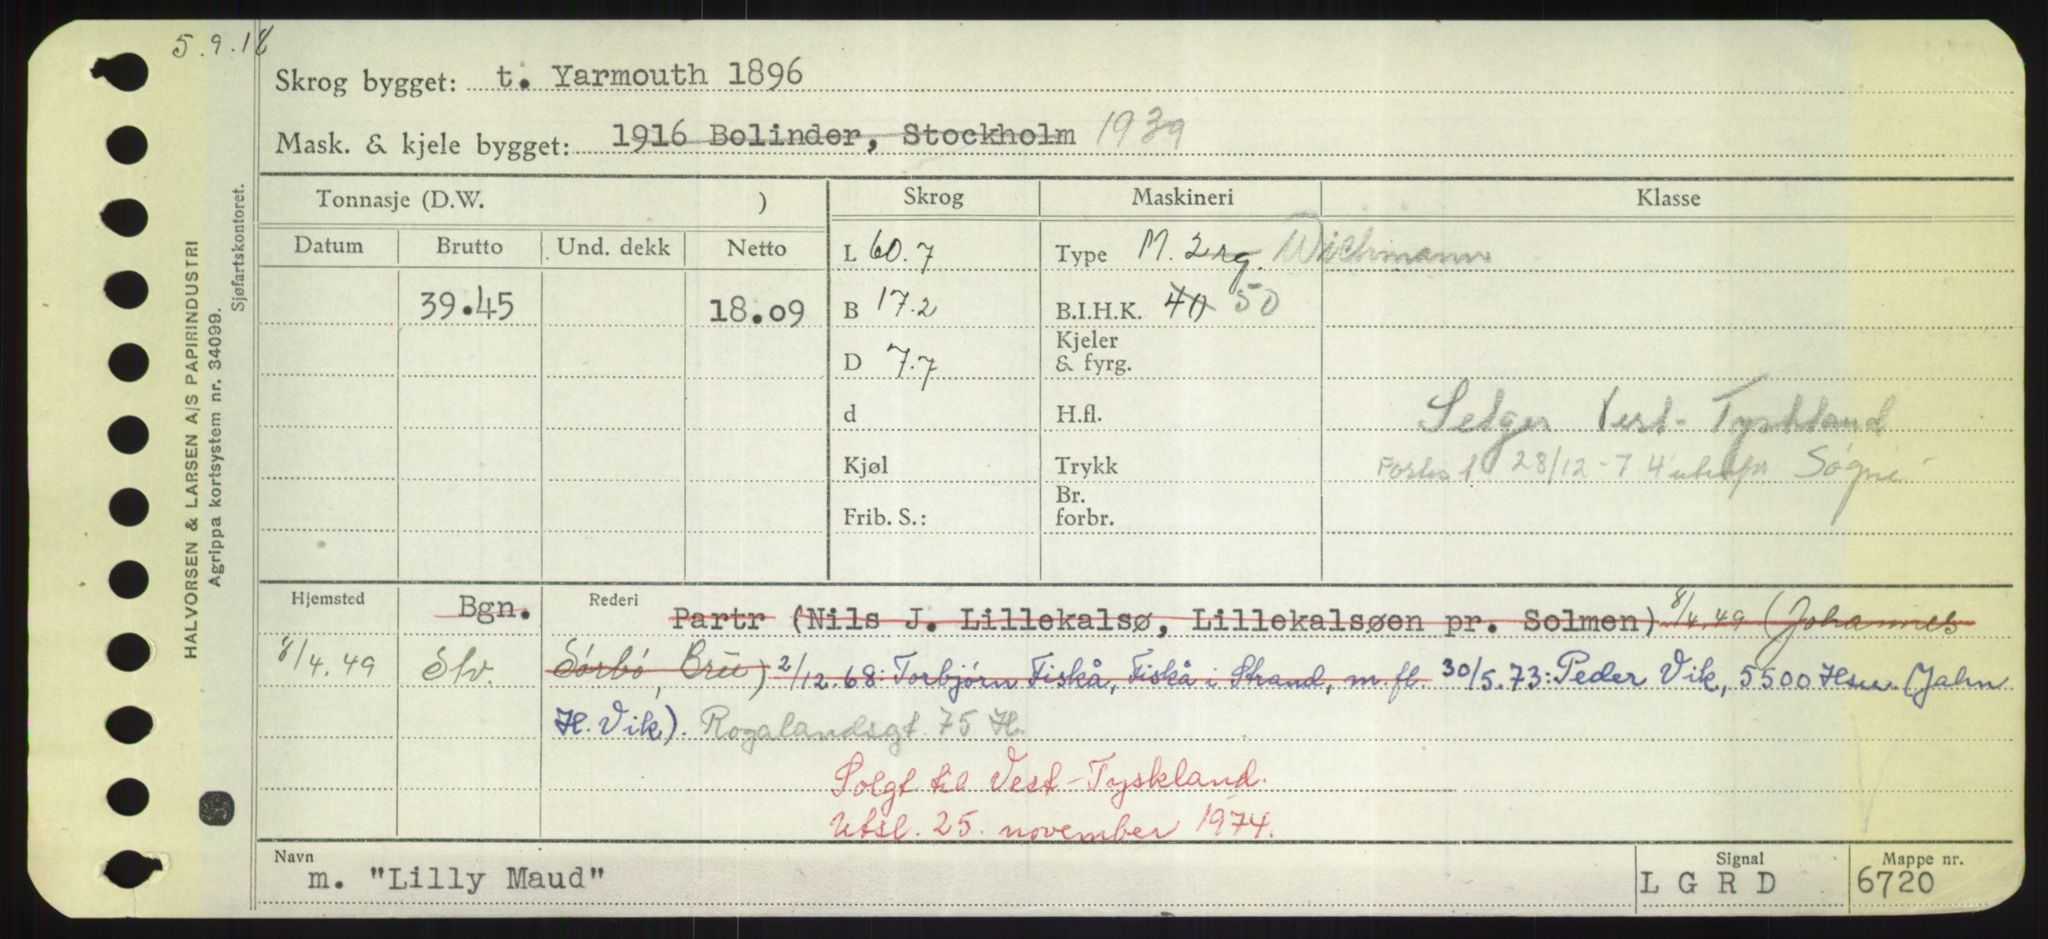 5.9.18
Skrog bygget: t. Yarmouth 1896
Mask. & kjele bygget: 1916 Bolinder, Stockholm 1939
HALVORSEN & LARSEN A/S PAPIRINDUSTRI
Agrippa kortsystem nr. 34099.
Sjøfartskontoret.
Tonnasje (D.W. ) Skrog Maskineri Klasse
Datum Brutto Und. dekk Netto L 60.7 Type M. 2 Wichmann
39.45 18.09 B 17.2 B.I.H.K. 40 50
D 7.7 Kjeler & fyrg.
d H.fl. Selges Vest-Tyskland
Kjøl Trykk Forlis 28/12-74 utenfor Søgne
Frib. S.: Br. forbr.
Hjemsted Bgn. Rederi Partr (Nils J. Lillekalsø, Lillekalsøen pr. Solmen) 8/4.49 (Johannes
8/4.49 Slv. Sørbø, Brü) 2/12.68: Torbjørn Fiskå, Fiskå i Strand, m.fl. 30/5.73: Peder Vik, 5500 Hsu. (Jahn
H. Vik). Rogalandsgt. 75 H.
Solgt til Vest-Tyskland.
Utsl. 25. november 1974.
Navn m. "Lilly Maud" Signal L G R D Mappe nr. 6720